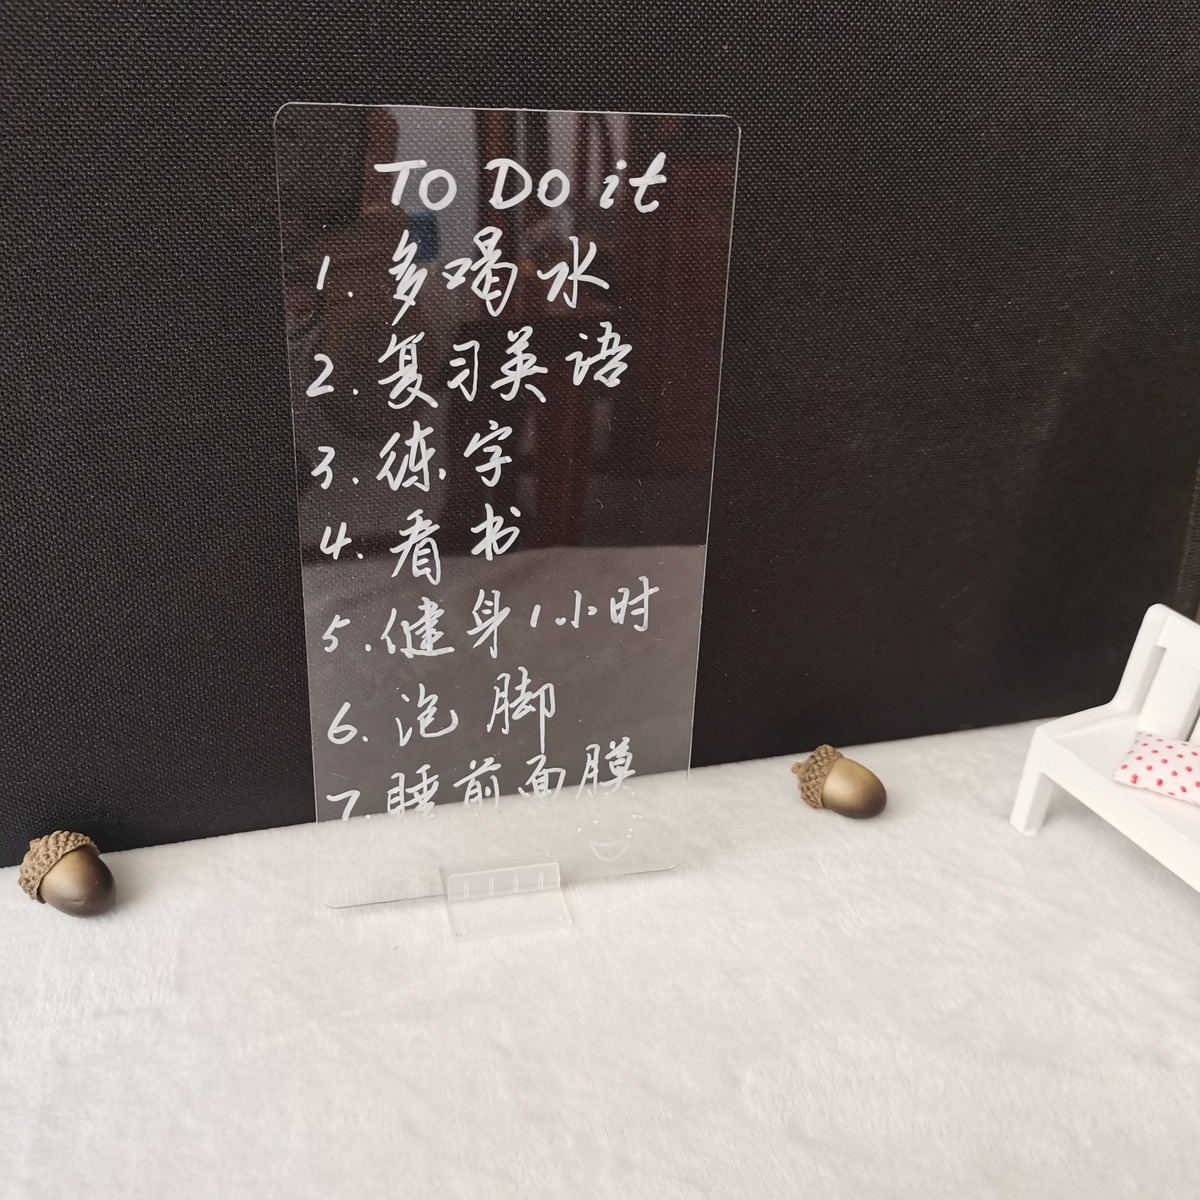 To Do it
1. 多喝水
2. 复习英语
3. 练字
4. 看书
5. 健身1小时
6. 泡脚
7. 睡前面膜